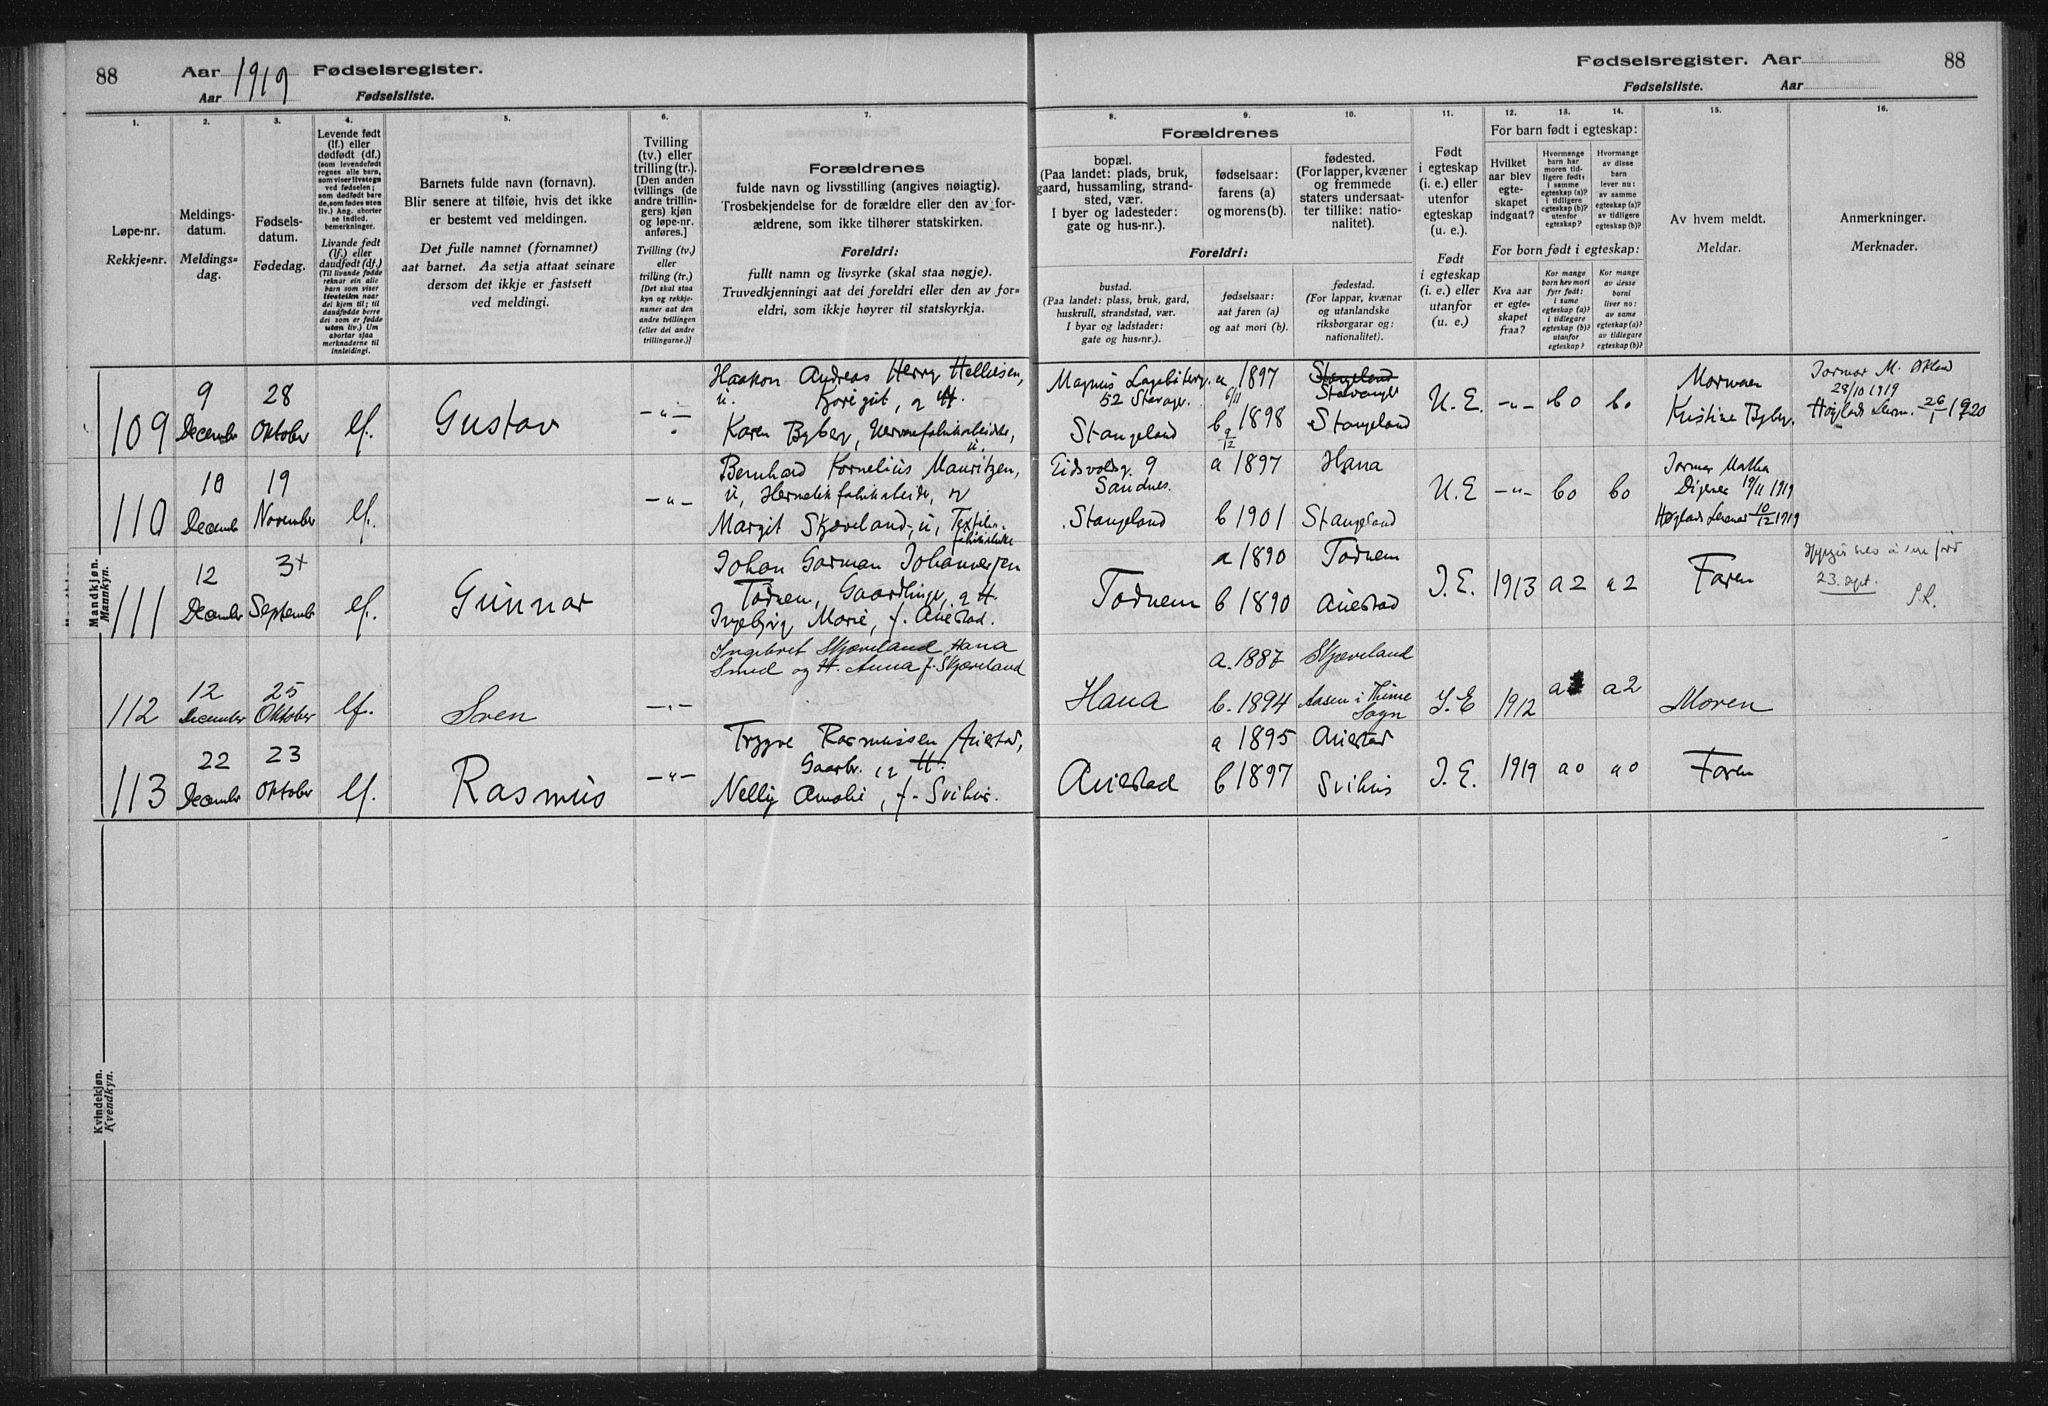 88
Aar 1919 Fødselsregister.
Aar
Fødselsliste.
1.
2.
3.
4.
5.
6.
7.
Løpe-nr.
Rekkje-nr.
Meldings-
datum.
Meldings-
dag.
Fødsels-
datum.
Fødedag.
Levende født
(lf.) eller
dødfødt (df.)
(som levendefødt
regnes alle barn,
som viser livstegn
ved fødselen;
som dødfødt bare
de, som fødes uten
liv.) Ang. aborter
se indled.
bemerkninger.
Livande født
(lf.) eller
daudfødt (df.)
(Til livande fødde
reknar ein alle
barn som viser
livsteikn naar
dei kjem til; til
daudfødde berre
dei som er fødde
uten liv.) Um
abortar sjaa
merknaderne til
innleidingi.
Barnets fulde navn (fornavn).
Blir senere at tilføie, hvis det ikke
er bestemt ved meldingen.
Det fulle namnet (fornamnet)
aat barnet. Aa setja attaat seinare
dersom det ikkje er fastsett
ved meldingi.
Tvilling
(tv.) eller
trilling(tr.).
[Den anden
tvillings (de
andre trillin-
gers) kjøn
og løpe-nr.
anføres.]
Tvilling (tv.)
eller
trilling (tr.)
[Det skal staa
kyn og rekkje-
numer aat den
andre tvillingen
(eller dei andre
trillingarne.)]
Forældrenes
fulde navn og livsstilling (angives nøiagtig).
Trosbekjendelse for de forældre eller den av for-
ældrene, som ikke tilhører statskirken.
Foreldri:
fullt namn og livsyrke (skal staa nøgje).
Truvedkjenningi aat dei foreldri eller den av for-
eldri, som ikkje høyrer til statskyrkja.
Mandkjøn.
Mannkyn.
109
9
December
28
Oktober
lf.
Gustav
-"-
Haakon Andreas Herry Helliesen,
Karen Byberg,
110
10
Decemb
19
November
lf.
-"-
Bernhard Kornelius Mauritzen,
Margit Skjæveland, u, Textil-
111
12
December
3
September
lf.
Gunnar
Johan Garman Johannesen
Todnem, Gaardbruger, og H.
Ingebjørg Marie, f. Auestad.
112
12
December
25
Oktober
lf.
Sven
-"-
Ingebret Skjæveland, Hana
Smed og H. Anna f. Skjæveland
113
22
December
23
Oktober
lf.
Rasmus
-"-
Trygve Rasmussen Auestad,
Gaarbr. og H.
Nelly Amalie, f. Svihus.
Kvindekjøn.
Kvendkyn.
Fødselsregister. Aar
88
Fødselsliste.
Aar
8.
9.
10.
11.
12.
13.
14.
15.
16.
Forældrenes
bopæl.
(Paa landet: plads, bruk,
gaard, hussamling, strand-
sted, vær.
I byer og ladesteder:
gate og hus-nr.).
fødselsaar:
farens (a)
og morens(b).
fødested.
(For lapper, kvæner
og fremmede
staters undersaat-
ter tillike: natio-
nalitet).
Foreldri:
bustad.
(Paa landet: plass, bruk, gard,
huskrull, strandstad, vær.
I byar og ladstader:
gate og hus-nr.).
fødselsaar:
aat faren (a)
og aat mori (b).
fødestad.
(For lappar, kvænar
og utanlandske
riksborgarar og:
nationalitet).
Født
i egteskap
(i. e.) eller
utenfor
egteskap
(u. e.).
Født
i egteskap
(i. e.) eller
utanfor
(u. e.).
For barn født i egteskap:
Hvilket
aar blev
egte-
skapet
indgaat?
Hvormange
barn har
moren tid-
ligere født:
i samme
egteskap (a)?
i tidligere
egteskap (b)?
utenfor
egteskap?
Hvormange
av disse
barn
lever nu:
av samme
egteskap (a)?
av tidligere
egteskap (b)?
For born født i egteskap:
Kva aar
er egte-
skapet
fraa?
Kor mange
born hev mori
fyrr født:
i same
egteskap (a)?
i tidlegare
egteskap (b)?
utanfor
egteskap?
Kor mange
av desse
borni
liver no:
av same
egteskap (a)?
av tidlegare
egteskap (b)?
Av hvem meldt.
Meldar.
Anmerkninger.
Merknader.
52 Stavgr.
a 1897
6/11
Stangeland
Stavanger
U. E.
-"-
b0
b0
Mormoren
Kristine Byberg.
Jormor M. Økland
28/10 1919
26/1 1920
Stangeland
b 1898
9/12
Stangeland
Eidsvoldsg. 9
Sandnes.
a 1897
Hana
U. E
-"-
b0
b0
Jormor Matha
19/11 1919
10/12 1919
Stangeland
b 1901
Stangeland
Todnem
a 1890
Todnem
I. E.
1913
a 2
a 2
Faren
23. sept.
b 1890
Auestad
Hana
a. 1887
Skjæveland
b. 1894
Aasen i Thime
Sogn
I. E
1912
a
a 2
Moren
Auestad
a 1895
Auestad
b 1897
Svihus
I. E.
1919
a 0
a 0
Faren